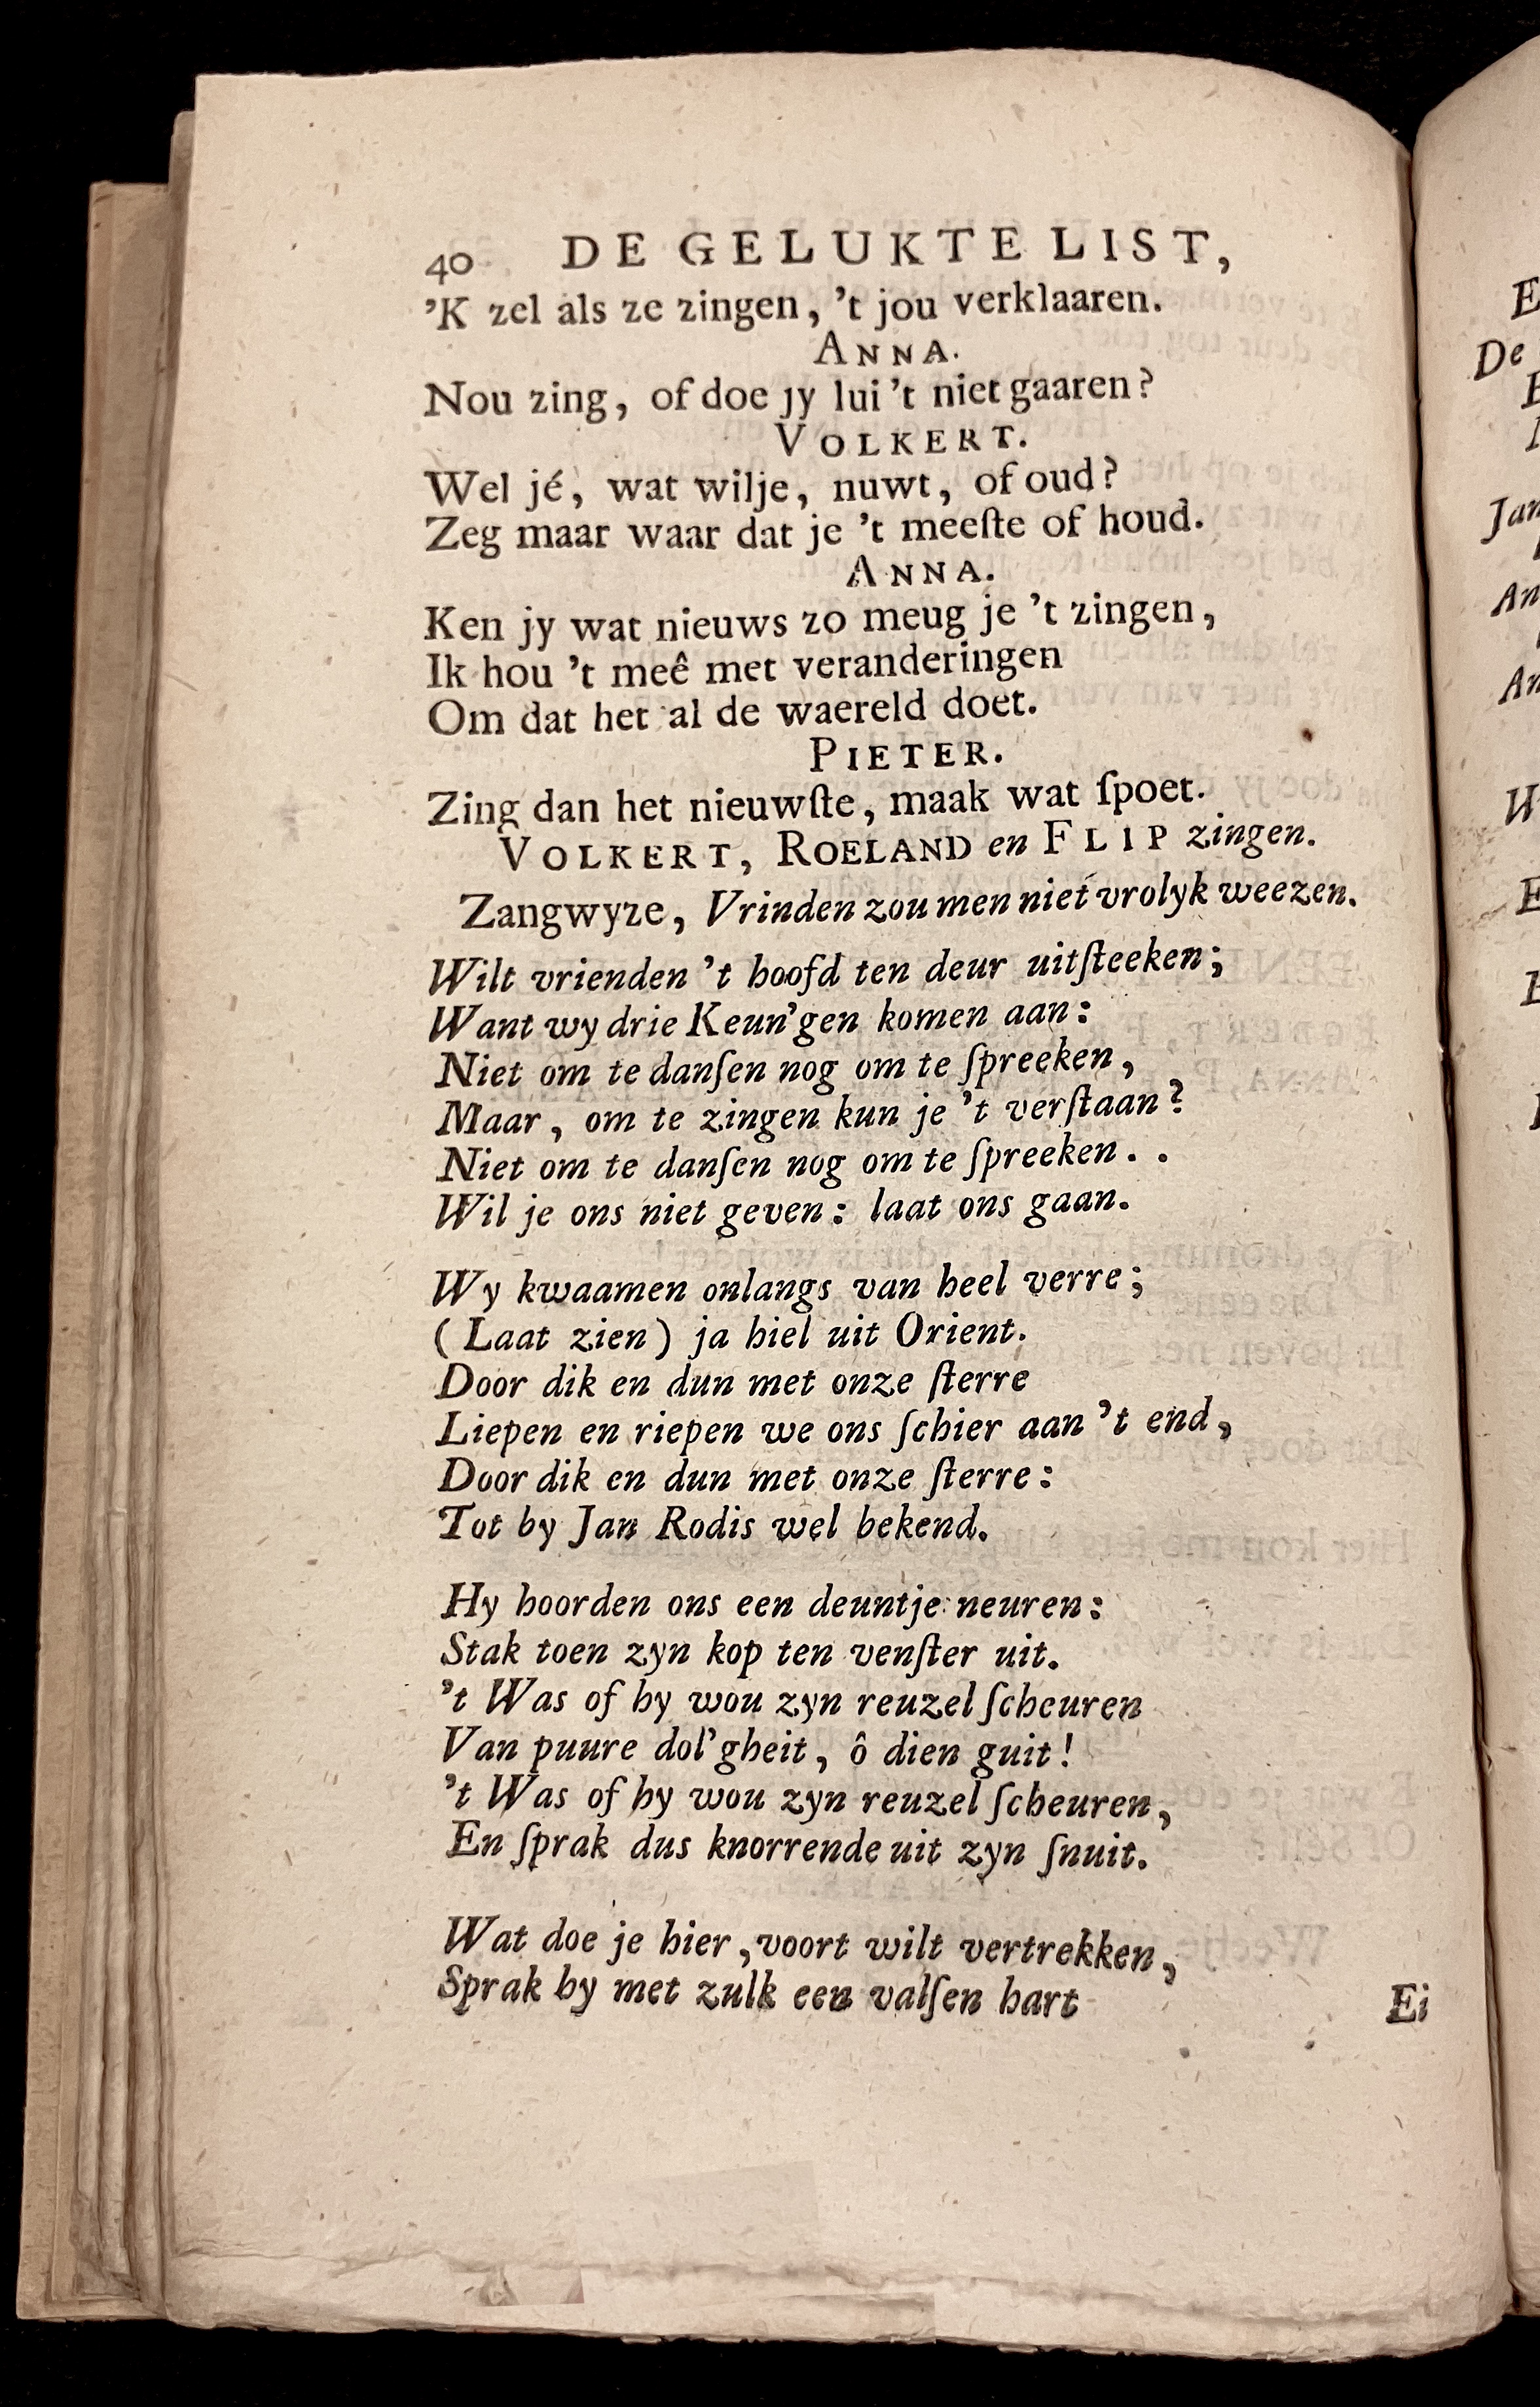 40 DE GELUKTE LIST,
’K zel als ze zingen, ’t jou verklaaren.
ANNA.
Nou zing, of doe jy lui ’t niet gaaren?
VOLKERT.
Wel jé, wat wilje, nuwt, of oud?
Zeg maar waar dat je ’t meeſte of houd.
ANNA.
Ken jy wat nieuws zo meug je ’t zingen,
Ik hou ’t meê met veranderingen
Om dat het al de waereld doet.
PIETER.
Zing dan het nieuwſte, maak wat ſpoet.
VOLKERT, ROELAND en FLIP zingen.
Zangwyze, Vrinden zou men niet vrolyk weezen.
Wilt vrienden ’t hoofd ten deur uitſteeken;
Want wy drie Keun’gen komen aan:
Niet om te danſen nog om te ſpreeken,
Maar, om te zingen kun je ’t verſtaan?
Niet om te danſen nog om te ſpreeken. .
Wil je ons niet geven: laat ons gaan.
Wy kwaamen onlangs van heel verre;
(Laat zien) ja hiel uit Orient.
Door dik en dun met onze ſterre
Liepen en riepen we ons ſchier aan ’t end,
Door dik en dun met onze ſterre:
Tot by Jan Rodis wel bekend.
Hy hoorden ons een deuntje neuren:
Stak toen zyn kop ten venſter uit.
’t Was of hy wou zyn reuzel ſcheuren
Van puure dol’gheit, ô dien guit!
’t Was of hy wou zyn reuzel ſcheuren,
En ſprak dus knorrende uit zyn ſnuit.
Wat doe je hier, voort wilt vertrekken,
Sprak hy met zulk een valſen hart
Ei
De
Jan